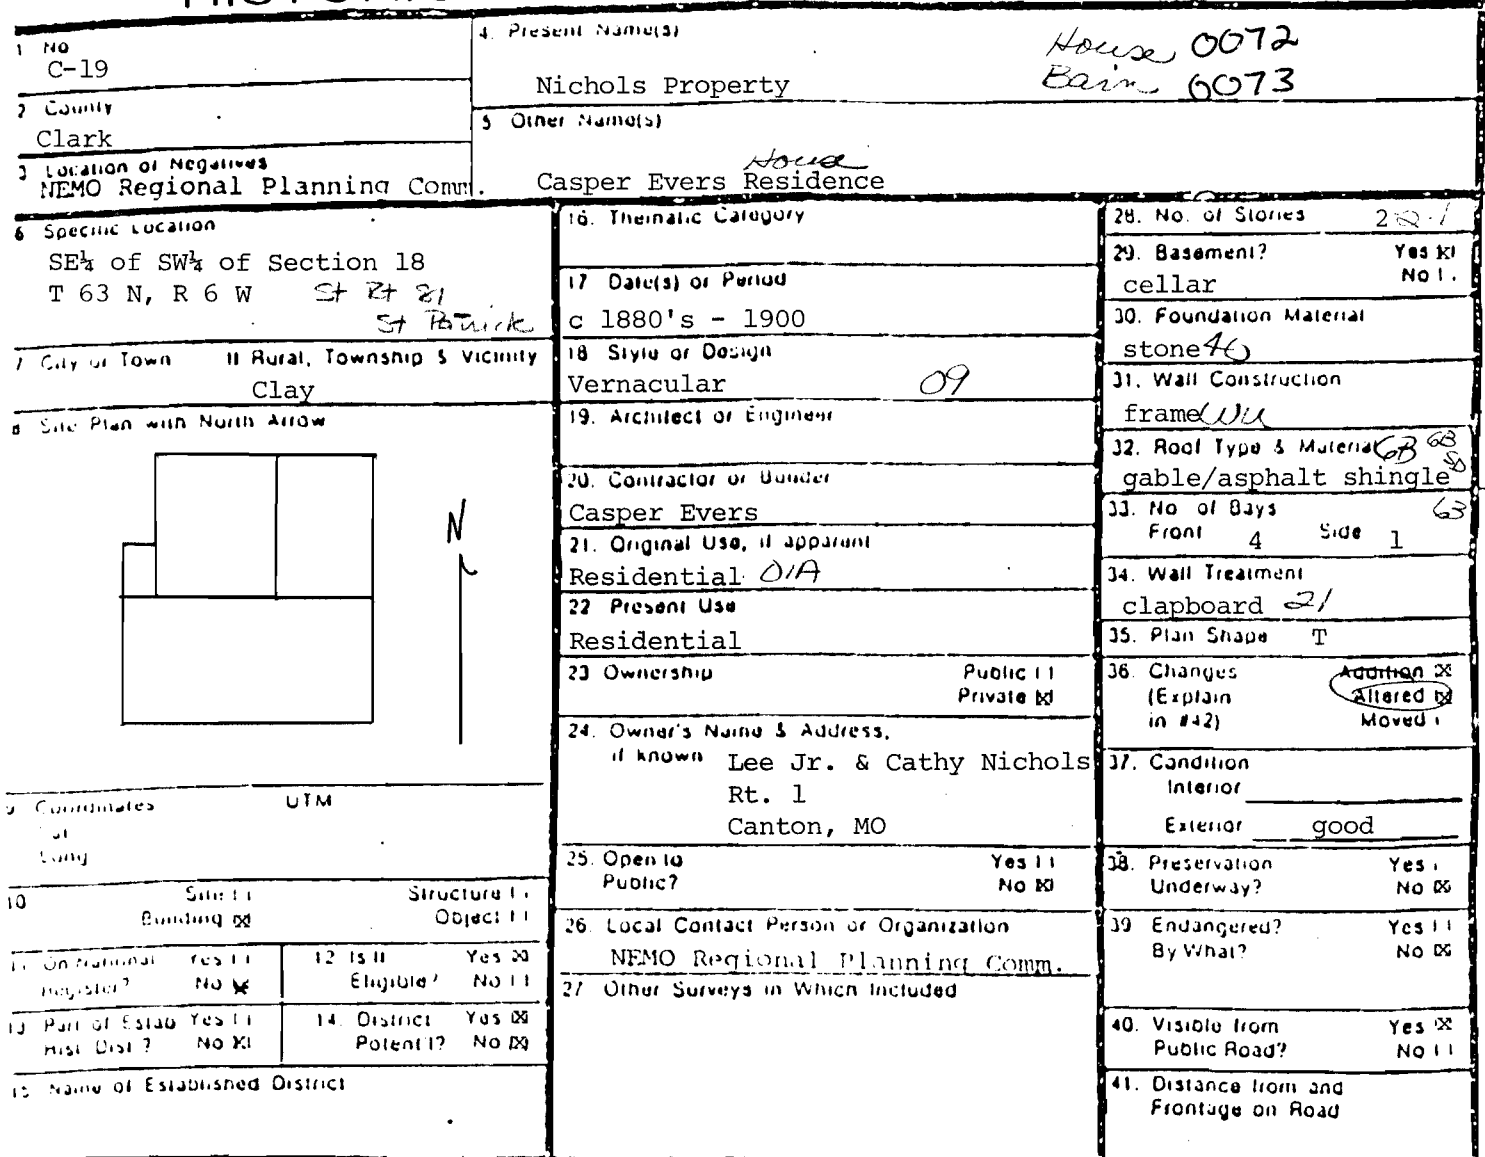 1 No
C-19
2 County
Clark
3 Location of Negatives
NEMO Regional Planning Comm.
4. Present Name(s)
Nichols Property
House 0072
Barn 0073
5 Other Name(s)
House
Casper Evers Residence
6 Specific Location
SE¼ of SW¼ of Section 18
T 63 N, R 6 W St Rt 81
St Patrick
7 City or Town If Rural, Township & Vicinity
Clay
8 Site Plan with North Arrow
N
9 Coordinates UTM
Lat
Long
10 Site
Structure
Building ☒
Object
11 On National Register? Yes
No ☒
12 Is It Eligible? Yes ☒
No
13 Part of Estab Hist. Dist.? Yes
No ☒
14. District Potent'l? Yes ☒
No ☒
15 Name of Established District
16. Thematic Category
17 Date(s) or Period
c 1880's - 1900
18 Style or Design
Vernacular 09
19. Architect or Engineer
20. Contractor or Builder
Casper Evers
21. Original Use, if apparent
Residential 01A
22 Present Use
Residential
23 Ownership Public
Private ☒
24. Owner's Name & Address,
if known Lee Jr. & Cathy Nichols
Rt. 1
Canton, MO
25. Open to Public? Yes
No ☒
26. Local Contact Person or Organization
NEMO Regional Planning Comm.
27 Other Surveys in Which Included
28. No. of Stories 2
29. Basement? Yes ☒
cellar No
30. Foundation Material
stone 40
31. Wall Construction
frame
32. Roof Type & Material GB
gable/asphalt shingle
33. No of Bays 63
Front 4 Side 1
34. Wall Treatment
clapboard 21
35. Plan Shape T
36. Changes Addition ☒
(Explain Altered ☒
in #42) Moved
37. Condition
Interior
Exterior good
38. Preservation Yes
Underway? No ☒
39 Endangered? Yes
By What? No ☒
40. Visible from Yes ☒
Public Road? No
41. Distance from and
Frontage on Road